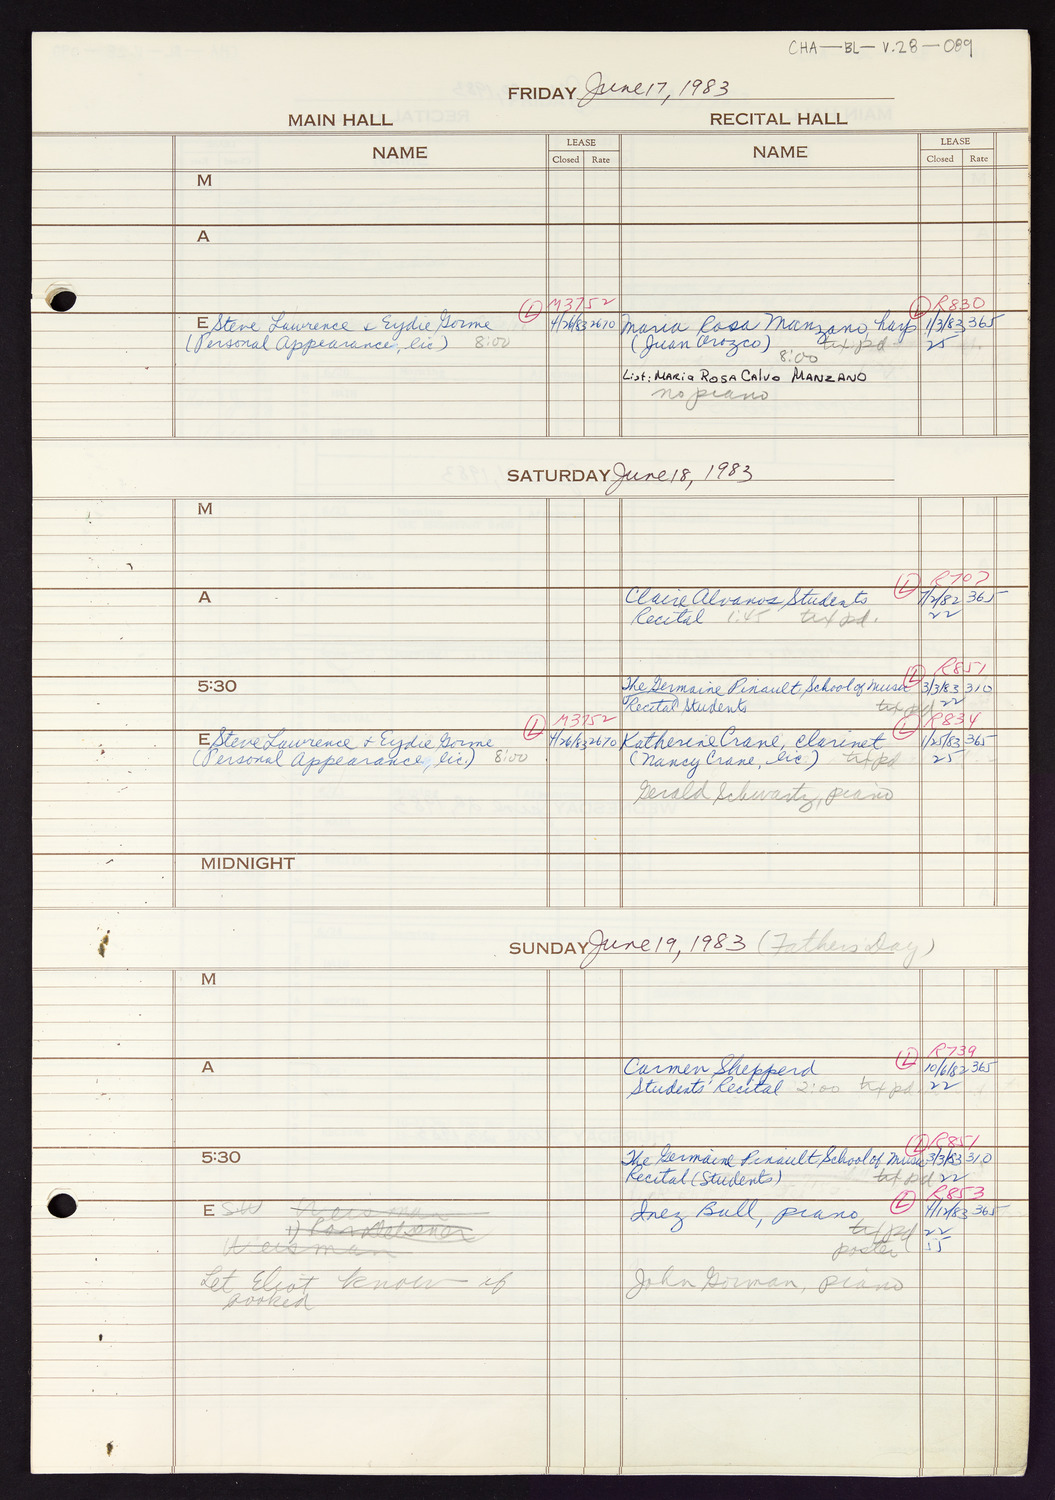 CHA-BL-V.28-089
FRIDAY June 17, 1983
MAIN HALL RECITAL HALL
NAME LEASE NAME LEASE
Closed Rate Closed Rate
M
A
L M3752 L R830
E Steve Lawrence & Eydie Gorme 4/26/83 2670 Maria Rosa Manzano, harp 1/3/83 365
(Personal Appearance, lic) 8:00 (Juan Orozco) tix pd 25
8:00
List: MARIA ROSA CALVO MANZANO
no piano
SATURDAY June 18, 1983
M
L R707
A Claire Alvanos Students 7/2/82 365
Recital 1:45 tix pd. 22
L R851
5:30 The Germaine Pinault School of Music 3/3/83 310
Recital Students tix pd 22
L M3752 L R834
E Steve Lawrence + Eydie Gorme 4/26/83 2670 Katherine Crane, clarinet 1/25/83 365
(Personal Appearance, lic) 8:00 (Nancy Crane, lic) tix pd 25
Gerald Schwartz, piano
MIDNIGHT
SUNDAY June 19, 1983 (Fathers Day)
M
L R739
A Carmen Shepperd 10/6/82 365
Students' Recital 2:00 tix pd 22
L R851
5:30 The Germaine Pinault School of Music 3/3/83 310
Recital (Students) tix pd 22
L R853
E SW Weisman Inez Bull, piano 4/12/83 365
tix pd 22
Weisman poster 55
Let Eliot know if John Gorman, piano
booked